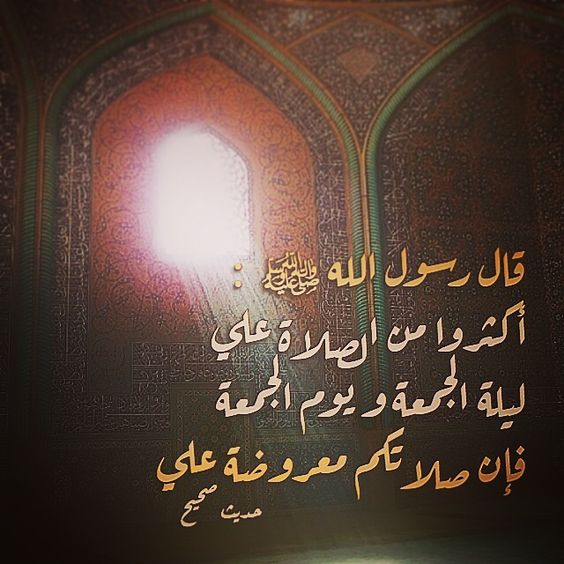 قال رسول الله ﷺ :
أكثروا من الصلاة علي
ليلة الجمعة و يوم الجمعة
فإن صلاتكم معروضة علي
حديث صحيح